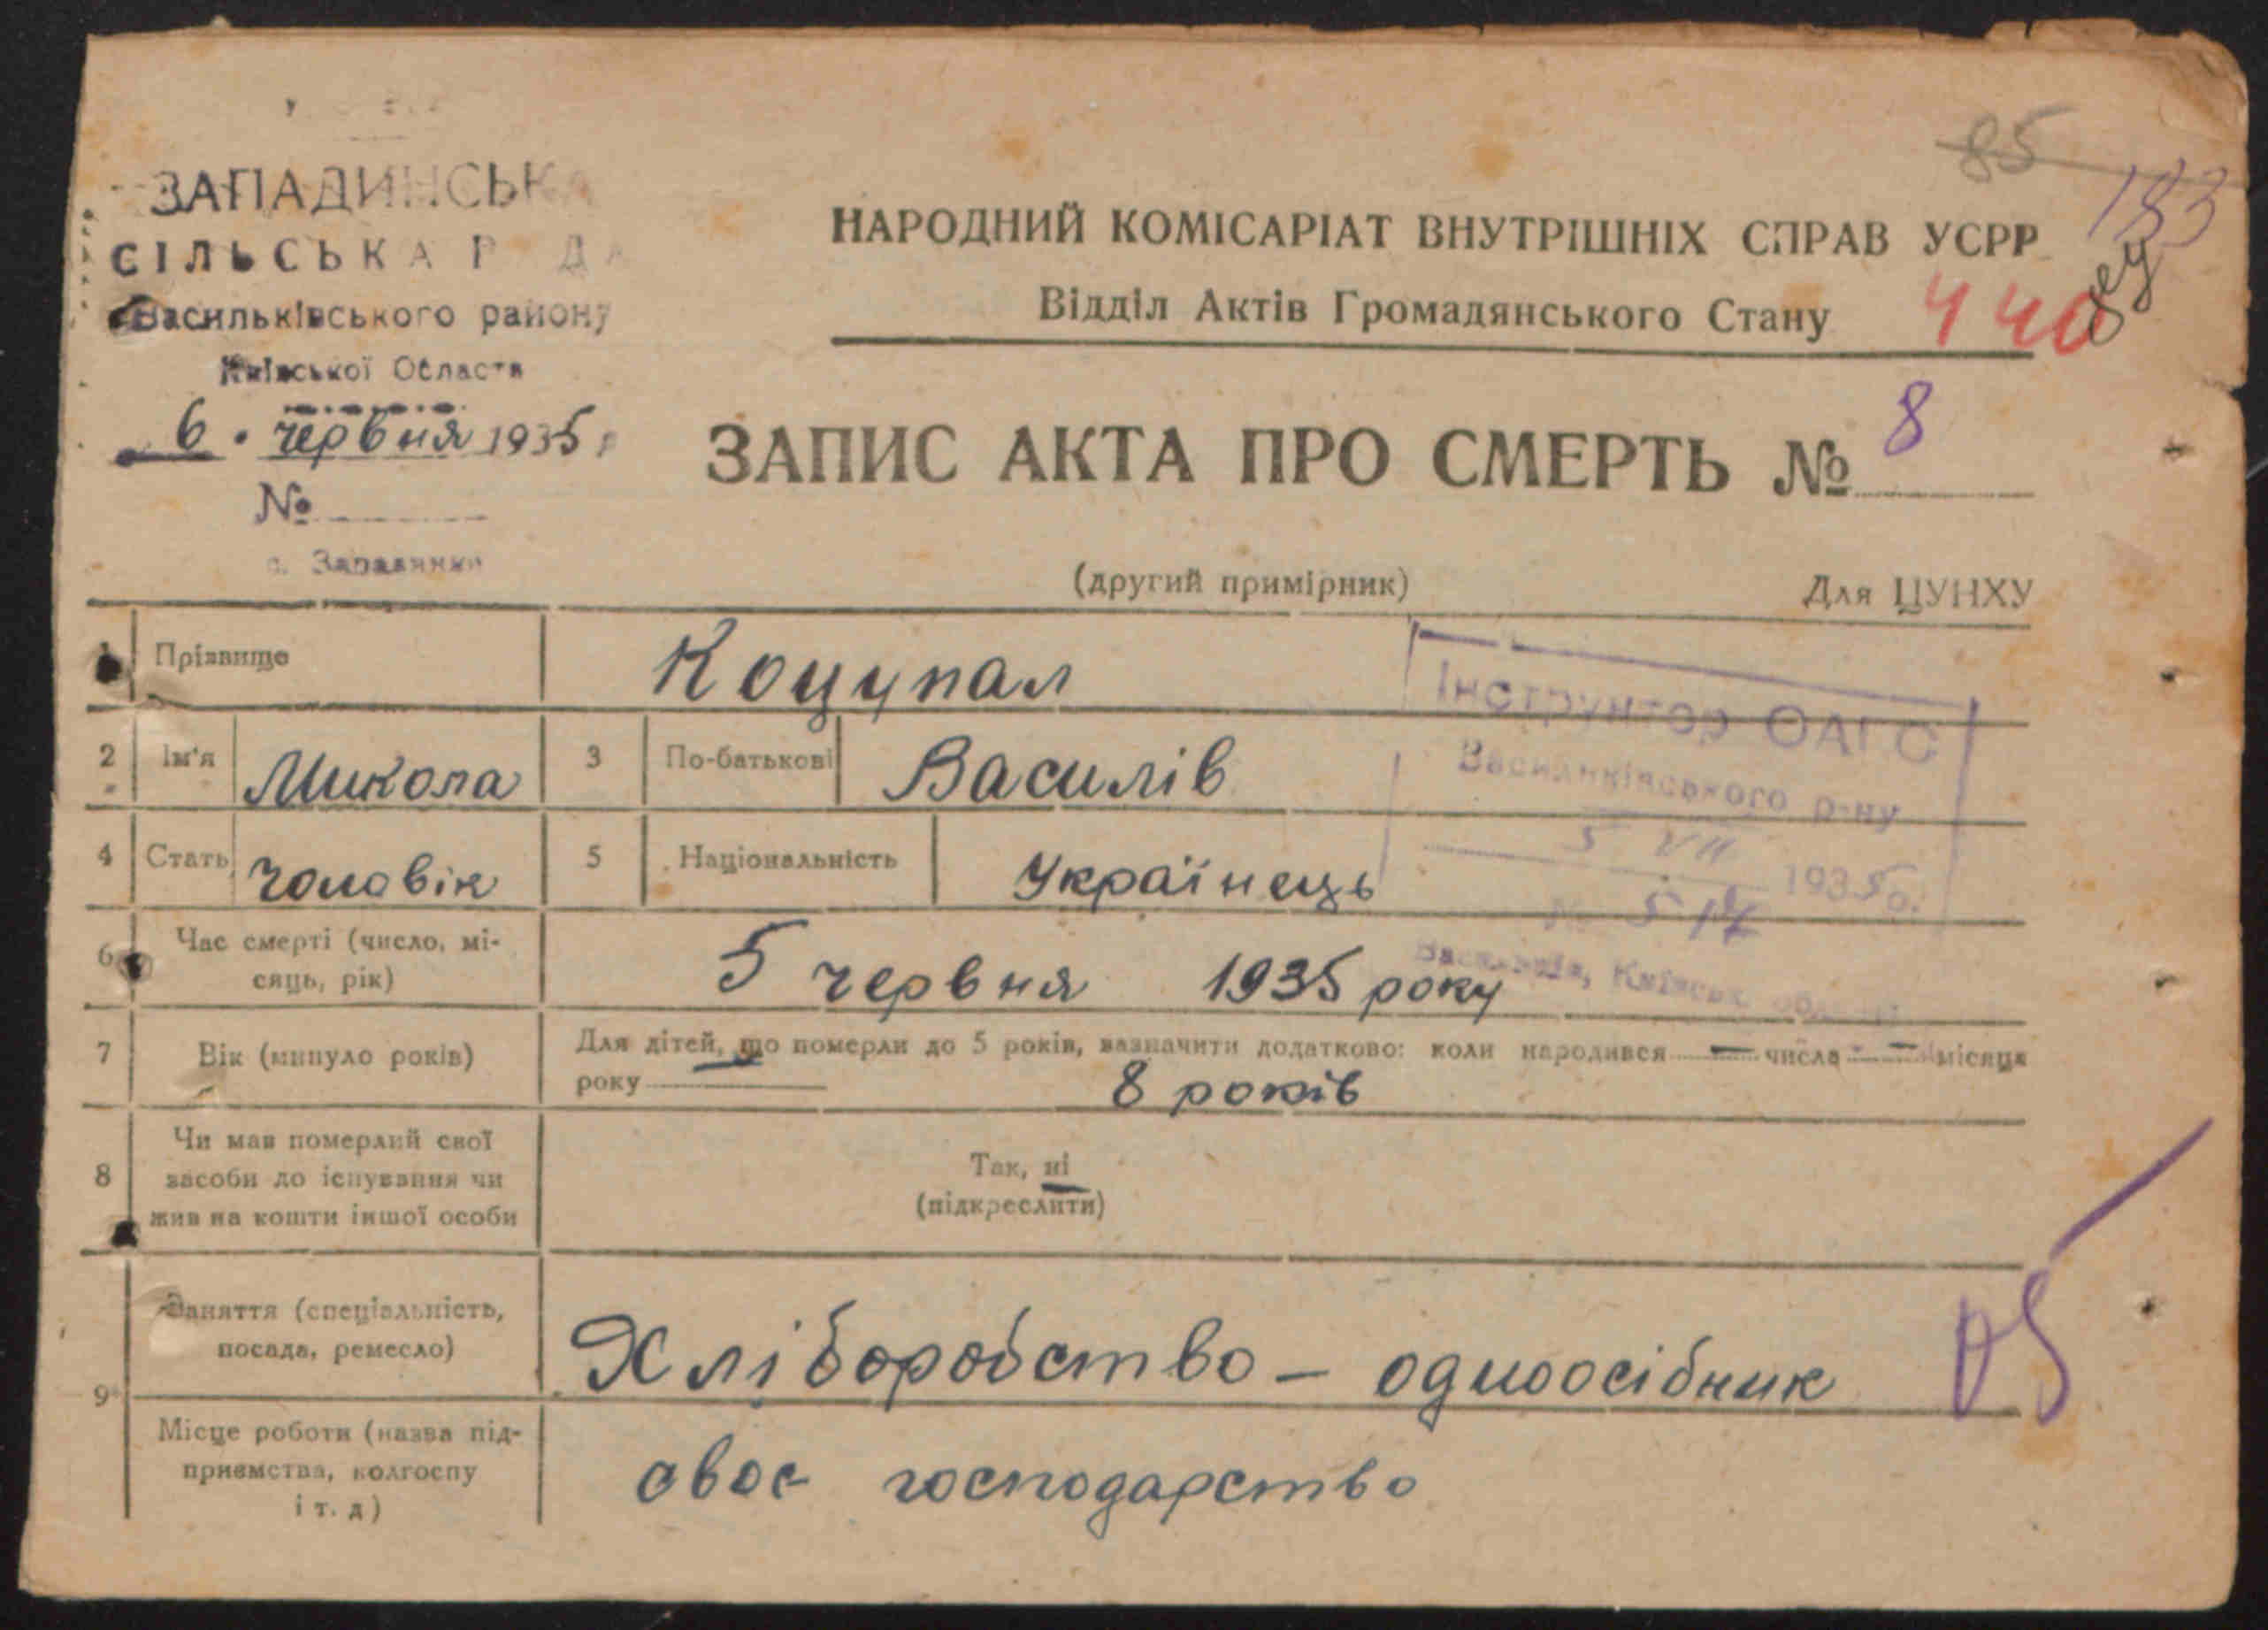 ЗАПАДИНСЬКА
СІЛЬСЬКА РАДА
Васильківського району
Київської Области
6 · червня 1935 р
№
с. Западинки
85
183
НАРОДНИЙ КОМІСАРІАТ ВНУТРІШНІХ СПРАВ УСРР
Відділ Актів Громадянського Стану
440
ЗАПИС АКТА ПРО СМЕРТЬ № 8
(другий примірник) Для ЦУНХУ
1 Прізвище Коцупал
Інструктор ОАГС
2 Ім'я Микола 3 По-батькові Василів
Васильківського р-ну
4 Стать чоловік 5 Національність Українець
5 VII 1935 р.
№ 517
6 Час смерті (число, мі-
сяць, рік) 5 червня 1935 року
Васильків, Київськ.
7 Вік (минуло років) Для дітей, що померли до 5 років, зазначити додатково: коли народився — числа — місяця
року
8 років
8 Чи мав померлий свої
засоби до існування чи
жив на кошти іншої особи
Так, ні
(підкреслити)
9 Заняття (спеціальність,
посада, ремесло) Хліборобство – одноосібник
05
Місце роботи (назва під-
приємства, колгоспу
і т. д) своє господарство